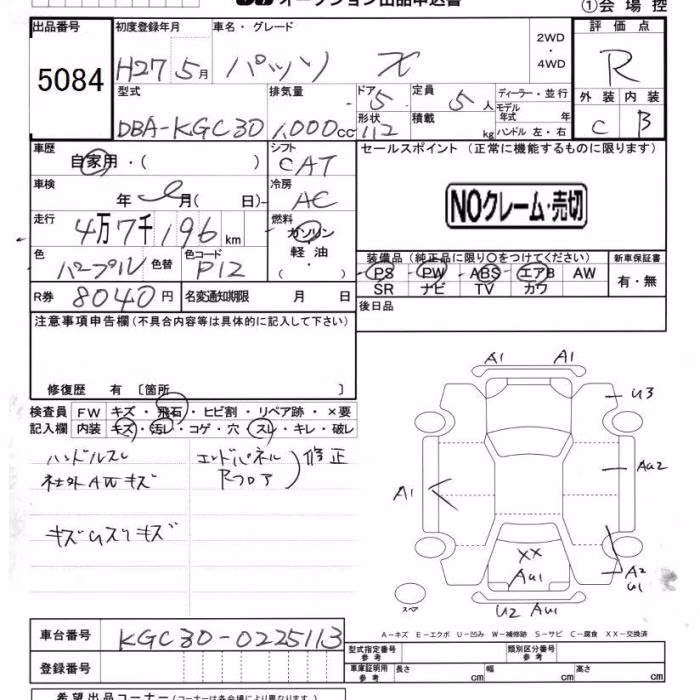 オークション出品申込書
①会場控
出品番号 初度登録年月 車名・グレード 評価点
5084
H27 5月 パッソ X 2WD・4WD R
型式 排気量 ドア 定員 ディーラー・並行 外装 内装
DBA-KGC30 1,000cc 5 5人 モデル年式 年
形状 112 積載 kg ハンドル 左・右 C B
車歴 自家用・( ) シフト CAT セールスポイント (正常に機能するものに限ります)
車検 年 月( 日) 冷房 AC NOクレーム・売切
走行 4万7千196km 燃料 ガソリン
軽油
・( )
色 パープル 色替 色コード P12 装備品(純正品に限り○をつけてください) 新車保証書
PS PW ABS エアB AW 有・無
SR ナビ TV カワ
R券 8040円 名変通知期限 月 日 後日品
注意事項申告欄(不具合内容等は具体的に記入して下さい)
修復歴 有 〔箇所 〕
検査員 FW キズ・飛石・ヒビ割・リペア跡・×要
記入欄 内装 キズ・汚レ・コゲ・穴・スレ・キレ・破レ
ハンドルスレ エンドパネル
社外AWキズ Rフロア
修正
A1 A1
U3
A1 AU2
XX
AU1
A2
U1
スペア
U2 AU1
A-キズ E-エクボ U-凹み W-補修跡 S-サビ C-腐食 XX-交換済
車台番号 KGC30-0225113 型式指定番号 参考 類別区分番号 参考
登録番号 車庫証明用 参考 長さ cm 幅 cm 高さ cm
希望出品コーナー(コーナーは各会場により異なります)